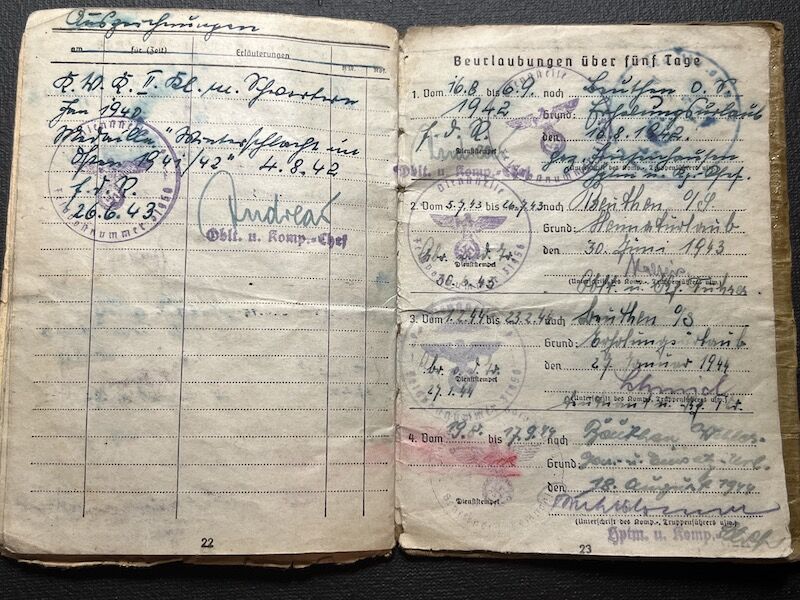 Auszeichnungen
am
für (Zeit)
Erläuterungen
K. W. K. II. Kl. m. Schwertern
Jan 1940
Medaille "Winterschlacht im
Osten 1941/42" 4.8.42
f. d. R.
26.6.43.
Dienststelle
Feldpostnummer 31650
Andreas
Oblt. u. Komp.-Chef
22
Beurlaubungen über fünf Tage
1. Vom 16.8. bis 6.9. nach Beuthen O. S.
1942 Grund: Erholungsurlaub
f. d. R. den 16.8.1942.
Dienststempel
Oblt. u. Komp.-Chef
(Unterschrift des Komp.-, Truppenführers usw.)
2. Vom 5.9.43 bis 26.9.43 nach Beuthen O/S
Grund:
den 30. Juni 1943
Dienststempel
(Unterschrift des Komp.-, Truppenführers usw.)
3. Vom 1.2.44 bis 23.2.44 nach Beuthen O/S
Grund: Erholungsurlaub
den 27. Januar 1944
Dienststempel
27.1.44
(Unterschrift des Komp.-, Truppenführers usw.)
4. Vom 19.8. bis 17.9.44 nach
Grund:
den 18. August 1944
Dienststempel
(Unterschrift des Komp.-, Truppenführers usw.)
Hptm. u. Komp.
23